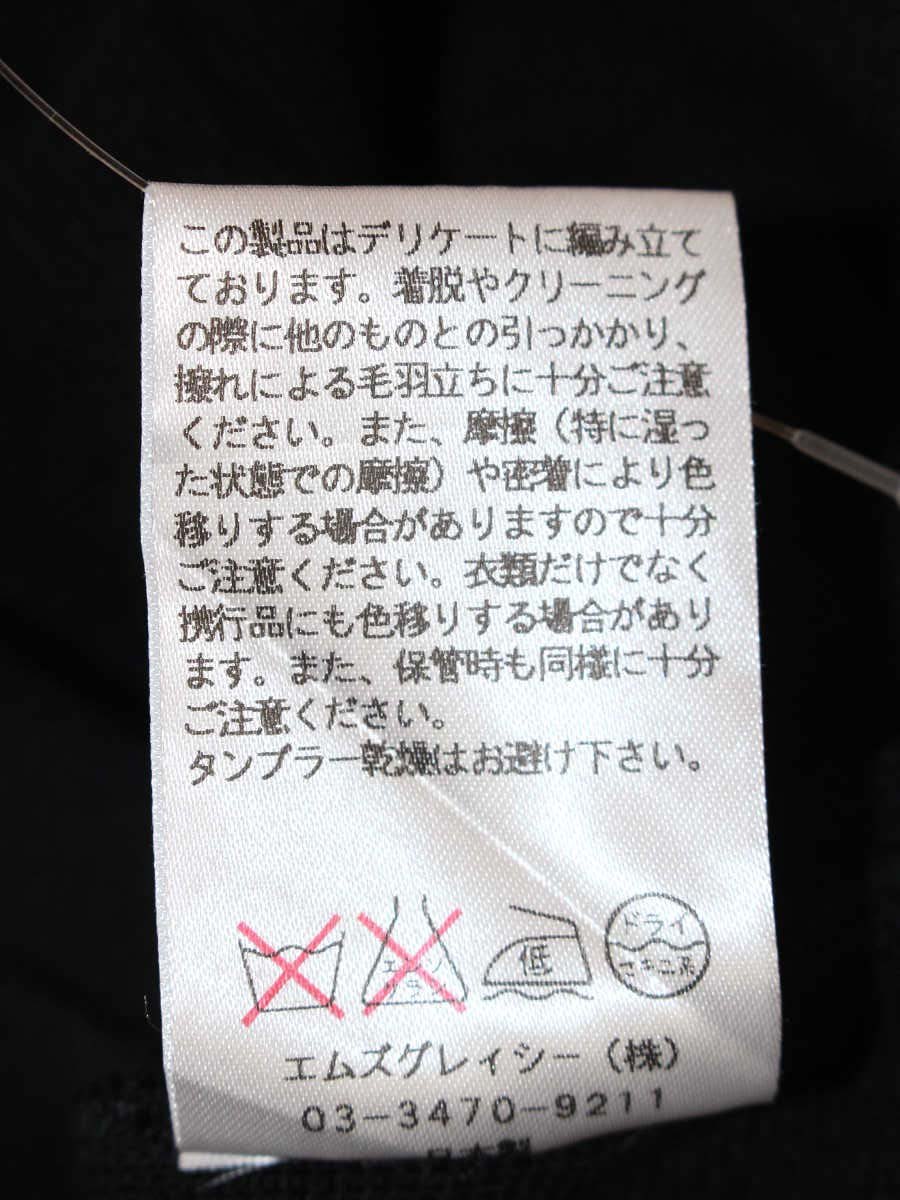 この製品はデリケートに編み立て
ております。着脱やクリーニング
の際に他のものとの引っかかり、
擦れによる毛羽立ちに十分ご注意
ください。また、摩擦（特に湿っ
た状態での摩擦）や密着により色
移りする場合がありますので十分
ご注意ください。衣類だけでなく
携行品にも色移りする場合があり
ます。また、保管時も同様に十分
ご注意ください。
タンブラー乾燥はお避け下さい。
エンソ
サラシ
低
ドライ
セキユ系
エムズグレイシー（株）
03-3470-9211
日本製